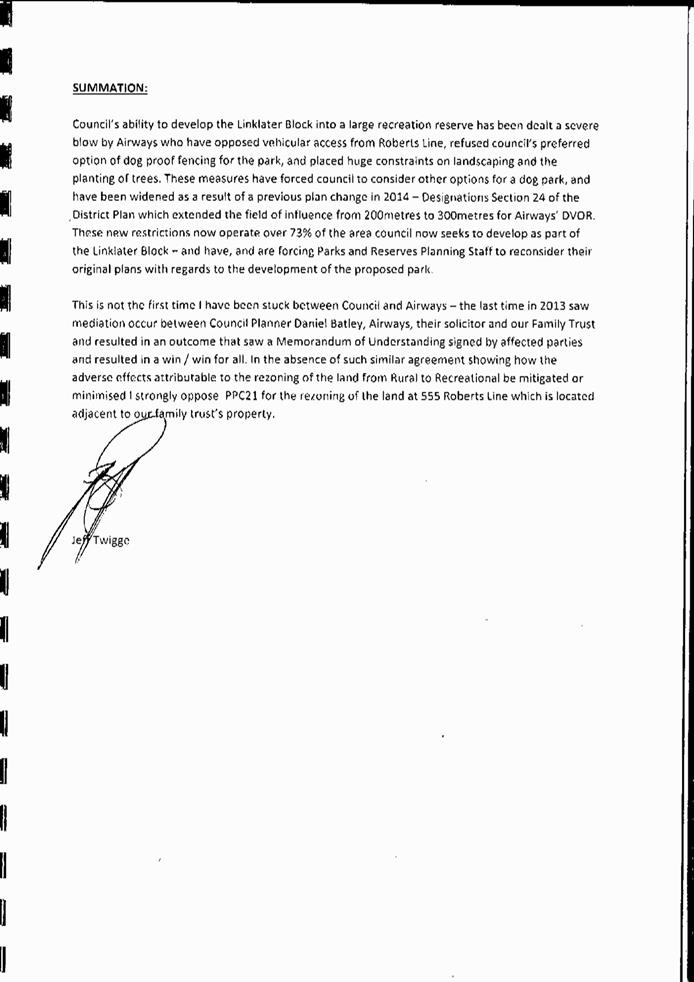 SUMMATION:
Council's ability to develop the Linklater Block into a large recreation reserve has been dealt a severe
blow by Airways who have opposed vehicular access from Roberts Line, refused council's preferred
option of dog proof fencing for the park, and placed huge constraints on landscaping and the
planting of trees. These measures have forced council to consider other options for a dog park, and
have been widened as a result of a previous plan change in 2014 – Designations Section 24 of the
District Plan which extended the field of influence from 200metres to 300metres for Airways' DVOR.
These new restrictions now operate over 73% of the area council now seeks to develop as part of
the Linklater Block – and have, and are forcing Parks and Reserves Planning Staff to reconsider their
original plans with regards to the development of the proposed park.
This is not the first time I have been stuck between Council and Airways – the last time in 2013 saw
mediation occur between Council Planner Daniel Batley, Airways, their solicitor and our Family Trust
and resulted in an outcome that saw a Memorandum of Understanding signed by affected parties
and resulted in a win / win for all. In the absence of such similar agreement showing how the
adverse effects attributable to the rezoning of the land from Rural to Recreational be mitigated or
minimised I strongly oppose PPC21 for the rezoning of the land at 555 Roberts Line which is located
adjacent to our family trust's property.
Jeff Twigge